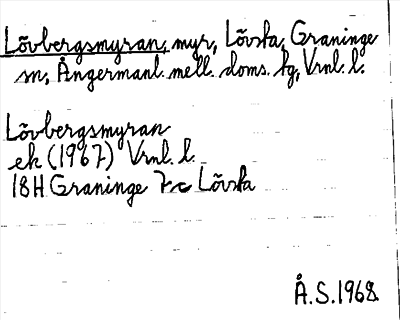 Lövbergsmyran, myr, Lövsta, Graninge
sn, Ångermanl. mell. doms. tg, Vrnl. l.
Lövbergsmyran
ek (1967) Vrnl. l.
18H Graninge 7c Lövsta
Å.S.1968